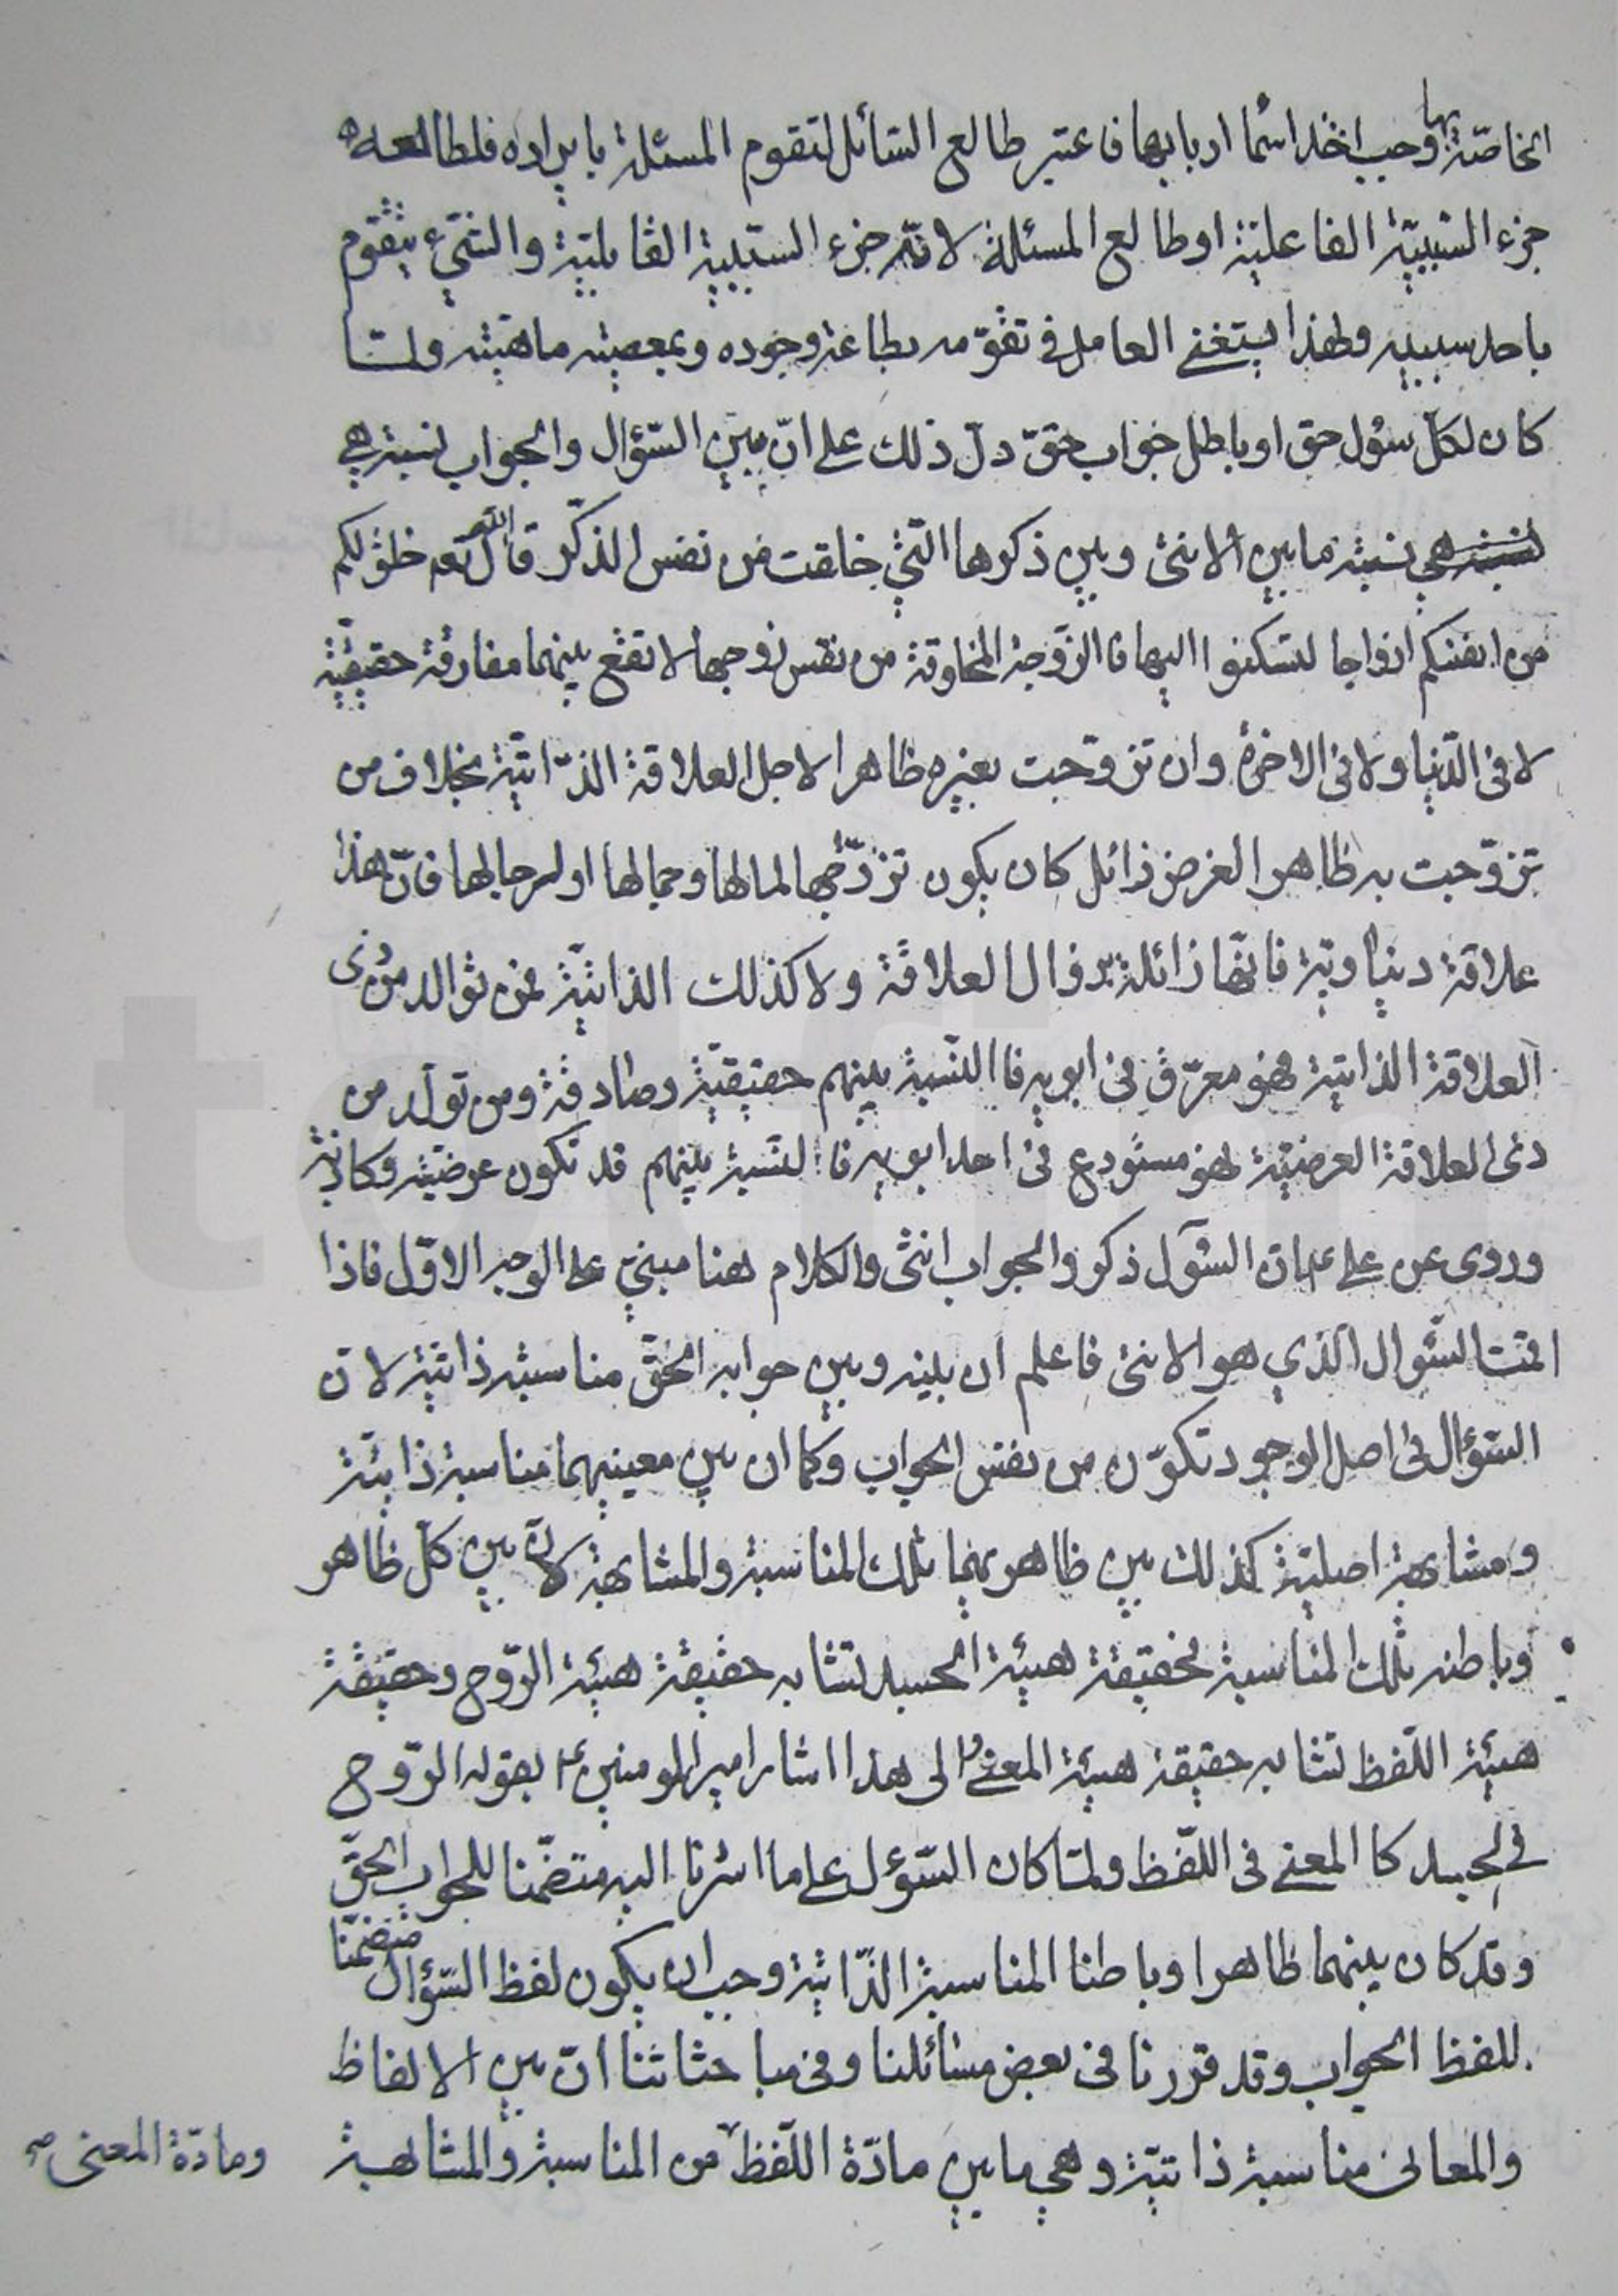 الخاصّة بها وجب اخذ اسماء اربابها فاعتبر طالع السّائل لتقوم المسئلة بايراده فلطالعه
جزء السّببيّة الفاعليّة او طالع المسئلة لانّه جزء السّببيّة القابليّة والشّيء يتقوم
باحد سببيه ولهذا يستغنى العامل في تقوّمه بطاعته وجوده وبمعصيته ماهيّته ولمّا
كان لكلّ سؤل حق او باطل جواب حقّ دلّ ذلك على انّ بين السّؤال والجواب نسبة هي
نسبة ما بين الانثى وبين ذكرها الّتي خلقت من نفس الذكّر قال الله تعم خلق لكم
من انفسكم ازواجا لتسكنوا اليها فالزّوجة المخلوقة من نفس زوجها لا تقع بينهما مفارقة حقيقيّة
لا في الدّنيا ولا في الاخرة وان تزوّجت بغيره ظاهرا لاجل العلاقة الذّاتيّة بخلاف من
تزوّجت به ظاهرا لغرض زائل كان يكون تزوّجها لمالها وجمالها او لرجالها فانّ هذا
علاقة دنياويّة فانّها زائلة بزوال العلاقة ولا كذلك الذاتيّة فمن توالد من ذى
العلاقة الذاتيّة فهو معرّق في ابويه فا النّسبة بينهم حقيقيّة وصادقة ومن تولّد من
ذى العلاقة العرضيّة فهو مستودع في احد ابويه فا لنسبة بينهم قد تكون عرضيّة وكاذبة
وروى عن على ع ان السّؤل ذكر والجواب انثى والكلام هنا مبنيّ على الوجه الاوّل فاذا
اقمت السّؤال الّذي هو الانثى فاعلم ان بينه وبين جوابه الحقّ مناسبة ذاتيّة لانّ
السّؤال في اصل الوجود تكوّن من نفس الجواب وكما ان بين معينيهما مناسبة ذاتيّة
ومشابهة اصليّة كذلك بين ظاهريهما تلك المناسبة والمشابهة لانّ بين كلّ ظاهر
وباطنه تلك المناسبة فحقيقة هيئة الجسد تشابه حقيقة هيئة الرّوح وحقيقة
هيئة اللّفظ تشابه حقيقة هيئة المعنى والى هذا اشار امير المومنين ع بقوله الرّوح
في الجسد كا المعنى في اللّفظ ولمّا كان السّؤل على ما اشرنا اليه متضمّنا للجواب الحقّ
وقد كان بينهما ظاهرا وباطنا المناسبة الذّاتيّة وجب ان يكون لفظ السّؤال متضمّنا
للفظ الجواب وقد قررنا في بعض مسائلنا وفى مباحثاتنا انّ بين الالفاظ
والمعانى مناسبة ذاتيّة وهي ما بين مادّة اللّفظ من المناسبة والمشابهة
ومادّة المعنى صح